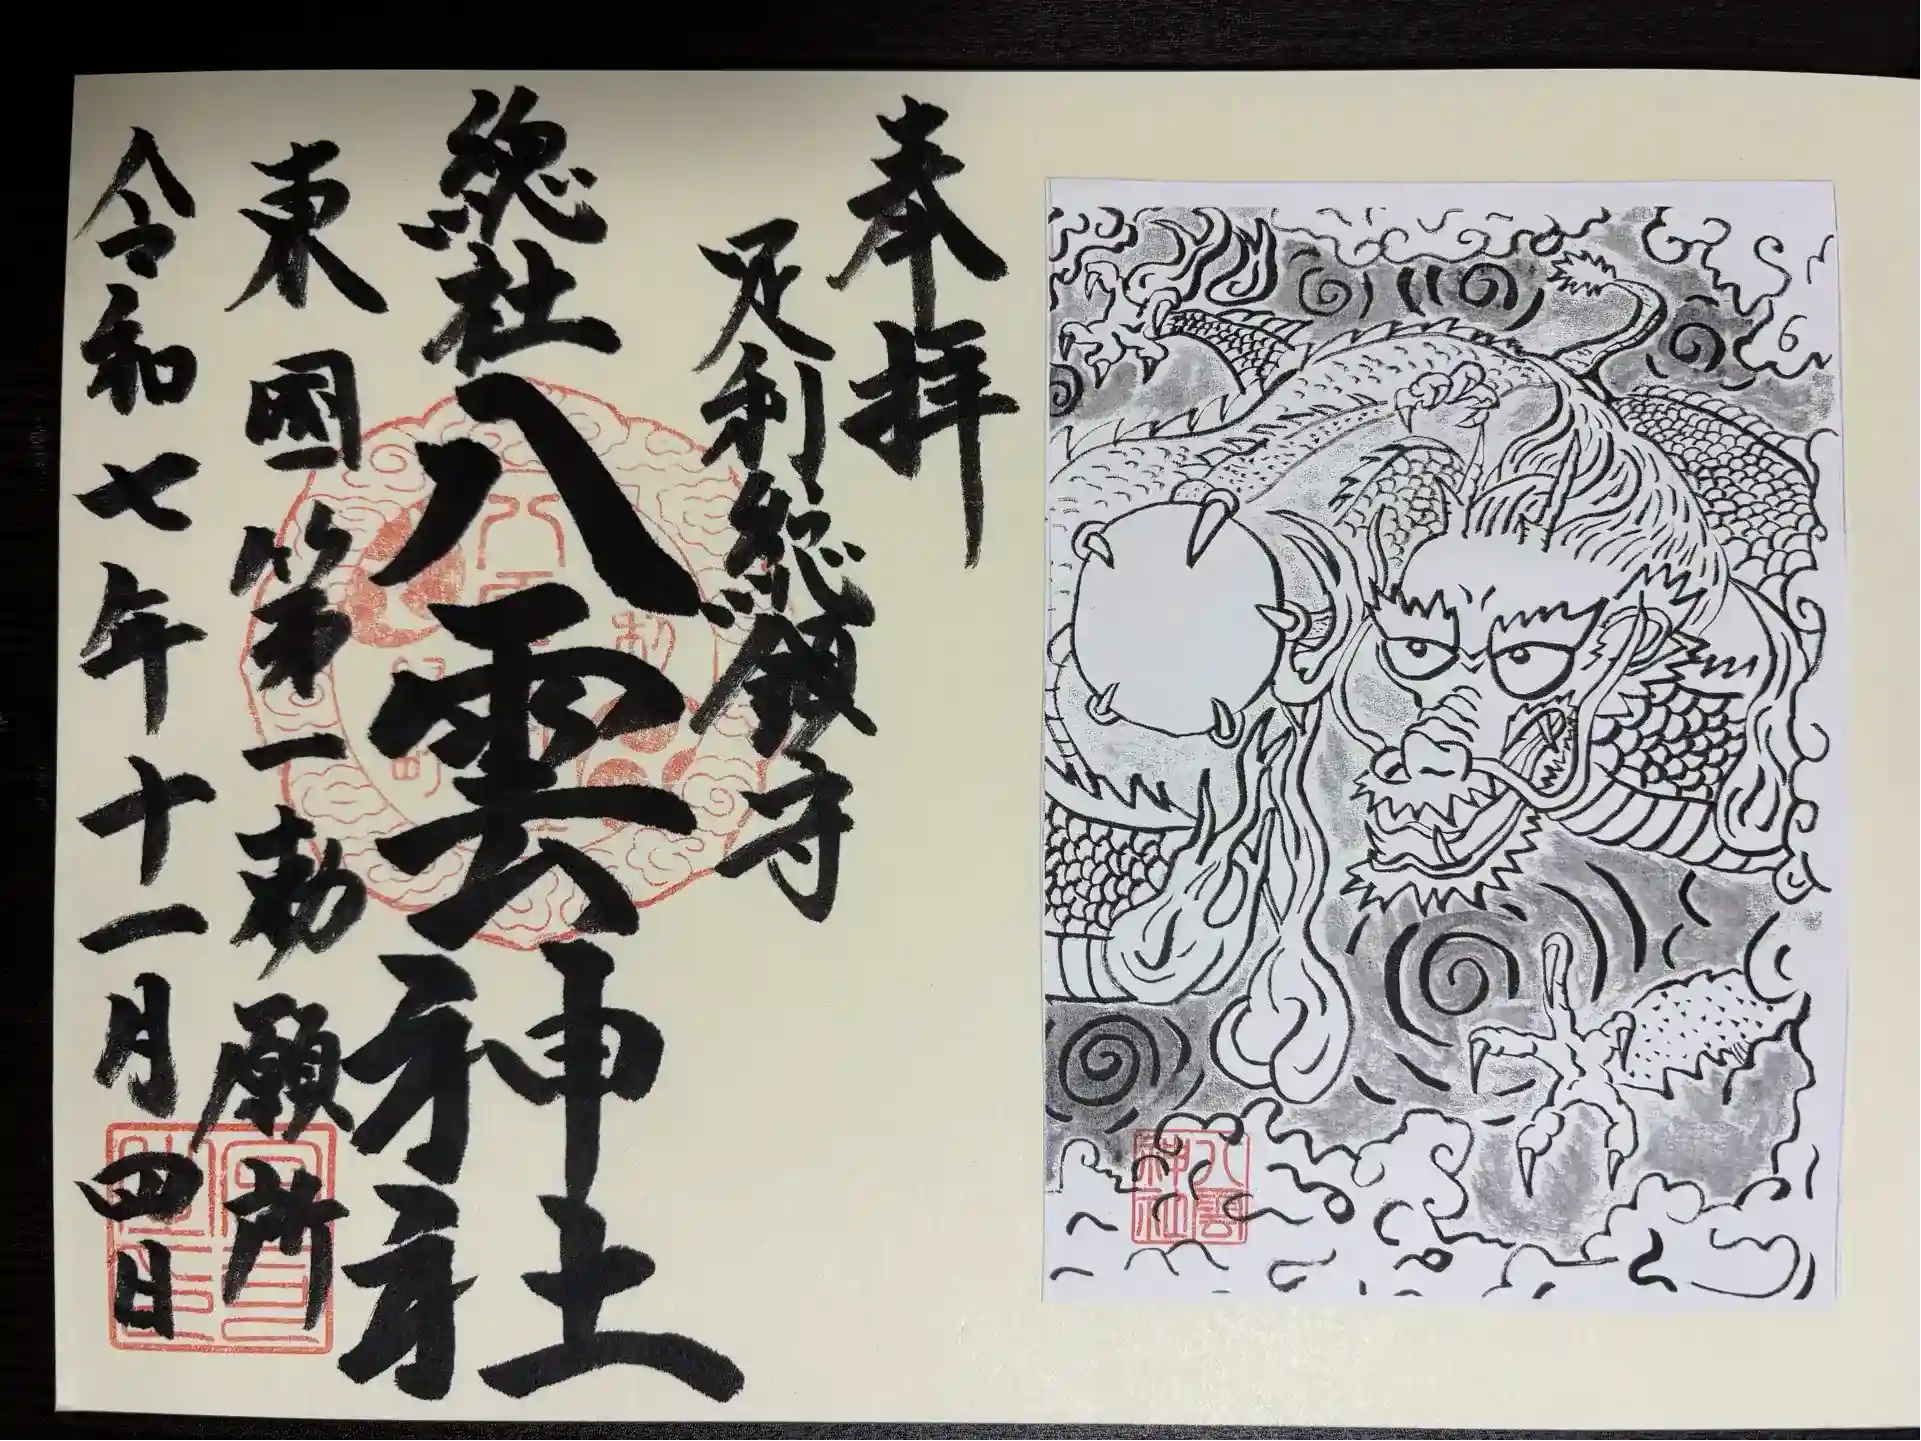 奉拝
足利総鎮守
総社八雲神社
東國第一勅願所
令和七年十一月四日
八雲神社